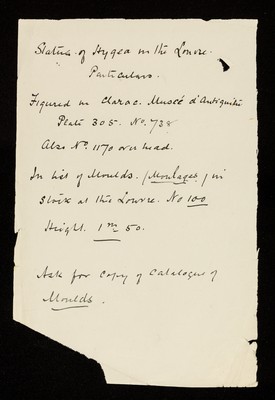 Statue of Hygea in the Louvre.
Particulars.
Figured in Clarac. Museé d'Antiquités
Plate 305. No. 738
Also No. 1170 over head.
In list of Moulds. (Moulages) in
Stock at the Louvre. No 100
Height. 1m 50.
Ask for copy of Catalogue of
Moulds.